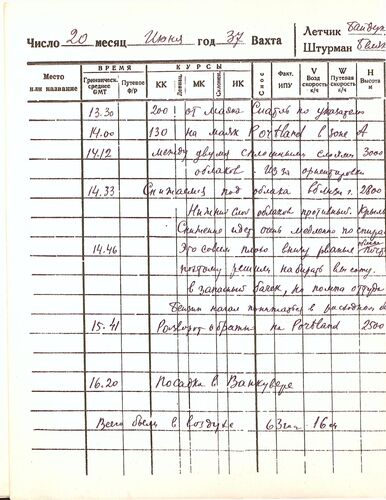 Число 20 месяц Июня год 37 Вахта
Летчик Байдук
Штурман Беляк
Место или название
ВРЕМЯ
Гринвическ. среднее GMT
Путевое ф/р
КУРСЫ
КК
Девиац.
МК
Склонен.
ИК
Снос
Факт. ИПУ
V Возд скорость к/ч
W Путевая скорость к/ч
H Высота м
13.30 200 от маяка Сиатль по указателю
14.00 130 на маяк Portland в зоне А
14.12 между двумя сплошными слоями 3000
облаков Из за ориентировки
14.33 Снижаемся под облака вблизи г. 2800
Нижний слой облаков противный. Крылья
Снижение идет очень медленно по спирали
14.46 Это совсем плохо внизу рваные
поэтому решили набирать высоту.
в запасный бачек, но помпа оттуда
Бензин начал понижаться в расходном
15.41 Разворот обратно на Portland 2500
16.20 Посадка в Ванкувере
Всего были в воздухе 63 час 16 м